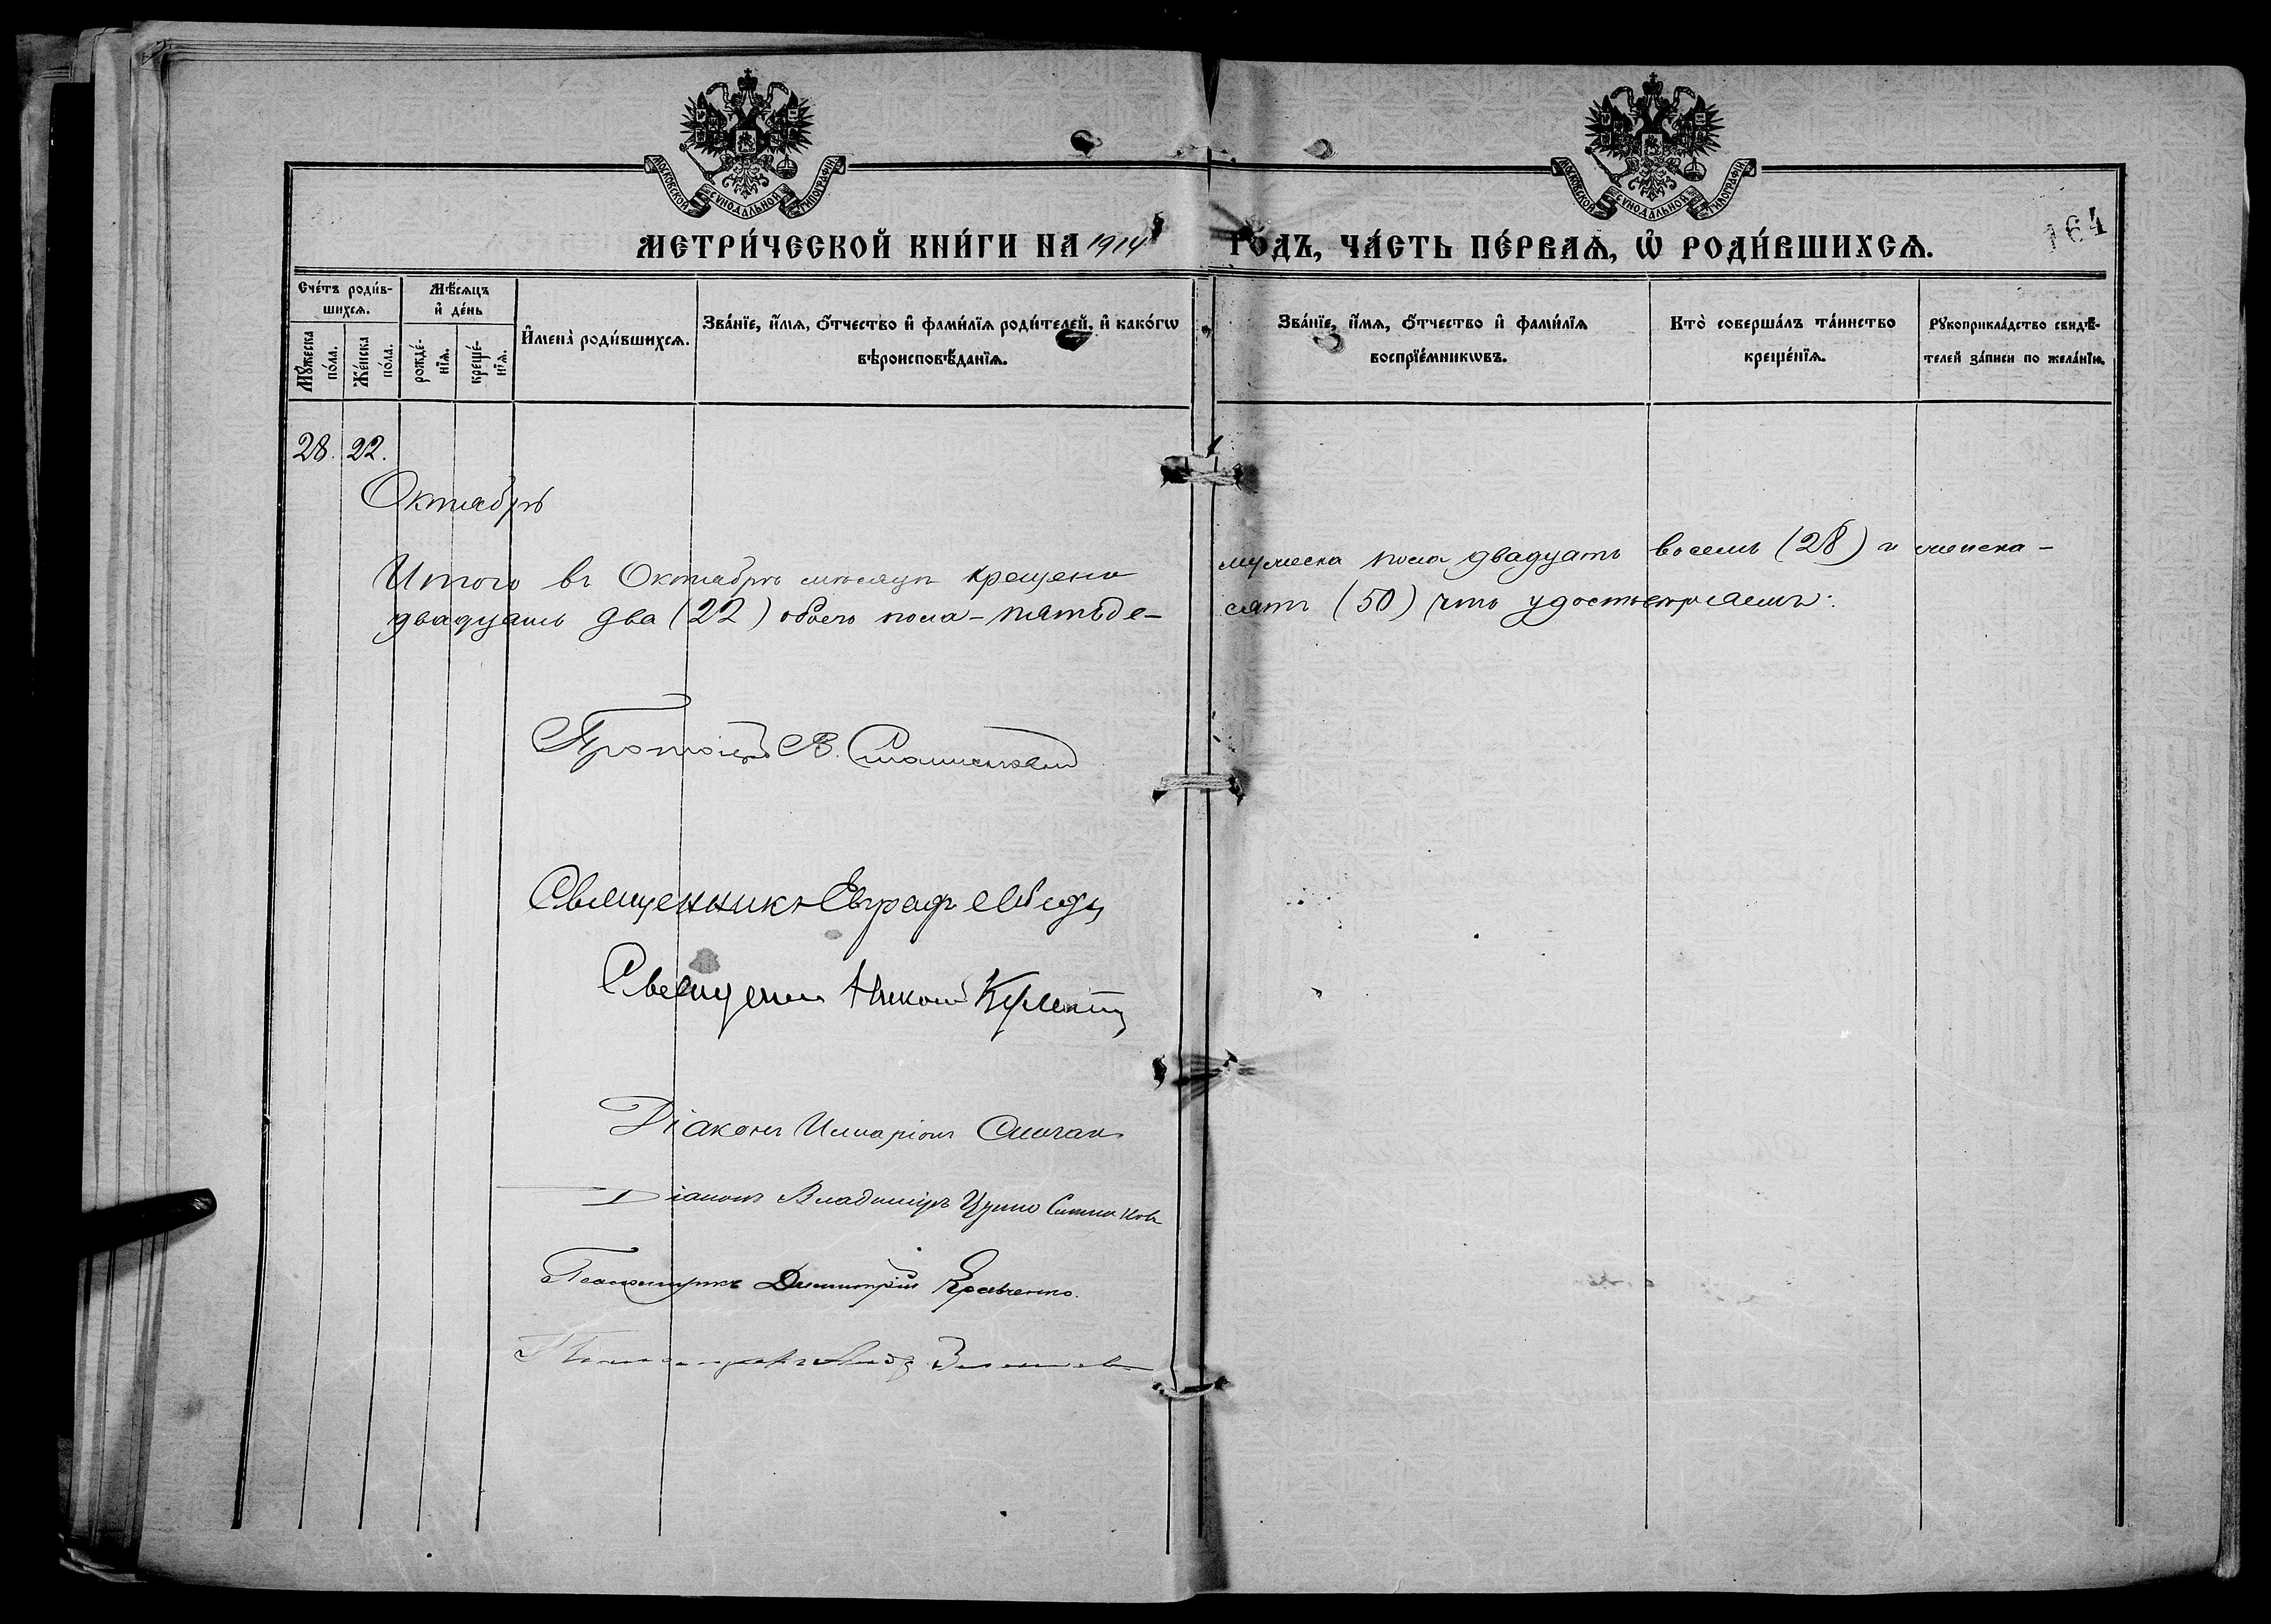 МОСКОВСКОЙ СѴНОДАЛЬНОЙ ТИПОГРАФІИ
МОСКОВСКОЙ СѴНОДАЛЬНОЙ ТИПОГРАФІИ
164
МЕТРИ́ЧЕСКОЙ КНИ́ГИ НА 1914 ГО́ДЪ, ЧА́СТЬ ПЕ́РВАѦ, Ѡ҆ РОДИ́ВШИХСѦ.
Сче́тъ роди́в-
шихсѧ.
Мꙋ́жеска
по́ла.
Же́нска
по́ла.
Мѣ́сѧцъ
и҆ де́нь
рожде́-
нїѧ.
креще́-
нїѧ.
И҆мена̀ роди́вшихсѧ.
Зва́нїе, и҆́мѧ, ѻ҆́тчество и҆ фами́лїѧ роди́телей, и҆ како́гѡ
вѣроисповѣ́данїѧ.
Зва́нїе, и҆́мѧ, ѻ҆́тчество и҆ фами́лїѧ
воспрїе́мникѡвъ.
Кто̀ соверша́лъ та́инство
креще́нїѧ.
Рꙋкоприкла́дство свидѣ́-
телей за́писи по жела́нїю.
28. 22.
Октябрь
Итого въ Октябрѣ мѣсяцѣ крещено мужеска пола двадцать восемь (28) и женска-
двадцать два (22) обоего пола - пятьде-сятъ (50) что удостовѣряемъ:
Протоіер. В.
Священникъ Евграфъ
Священникъ Никол
Діаконъ Иларіонъ
Діаконъ Владиміръ
Псаломщикъ Димитрій Кравченко.
Псаломщикъ